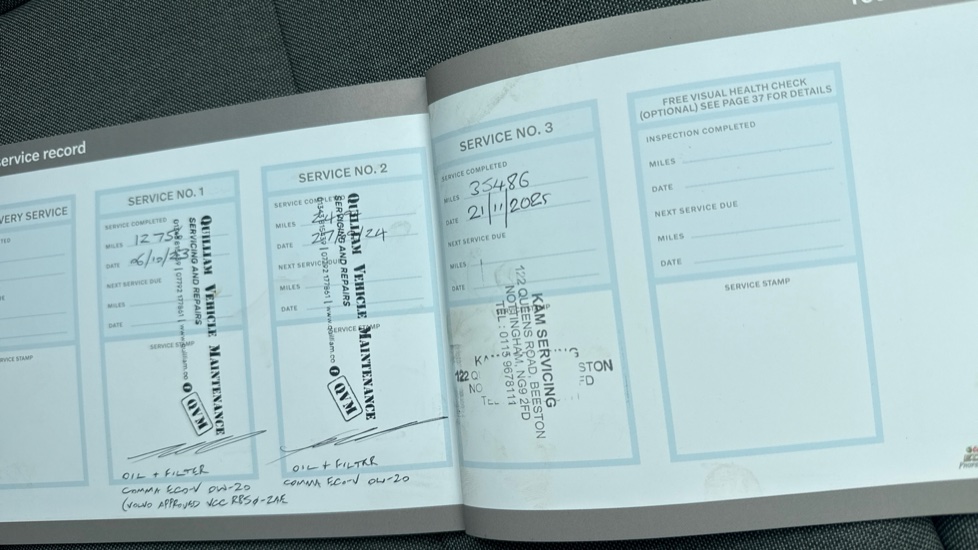 ervice record
VERY SERVICE
SERVICE STAMP
SERVICE NO. 1
SERVICE COMPLETED
MILES
DATE 06/10/
NEXT SERVICE DUE
MILES
DATE
SERVICE STAMP
QUILLIAM VEHICLE MAINTENANCE
SERVICING AND REPAIRS
QVM
OIL + FILTER
COMMA ECO-V 0W-20
(VOLVO APPROVED VCC RBS0-2AE
SERVICE NO. 2
SERVICE COMPLETED
MILES
DATE
NEXT SERVICE DUE
MILES
DATE
SERVICE STAMP
QUILLIAM VEHICLE MAINTENANCE
SERVICING AND REPAIRS
QVM
OIL + FILTER
COMMA ECO-V 0W-20
SERVICE NO. 3
SERVICE COMPLETED
MILES 35486
DATE 21/11/2025
NEXT SERVICE DUE
MILES
DATE
KAM SERVICING
122 QUEENS ROAD, BEESTON
NOTTINGHAM, NG9 2FD
TEL : 0115 9678111
FREE VISUAL HEALTH CHECK
(OPTIONAL) SEE PAGE 37 FOR DETAILS
INSPECTION COMPLETED
MILES
DATE
NEXT SERVICE DUE
MILES
DATE
SERVICE STAMP